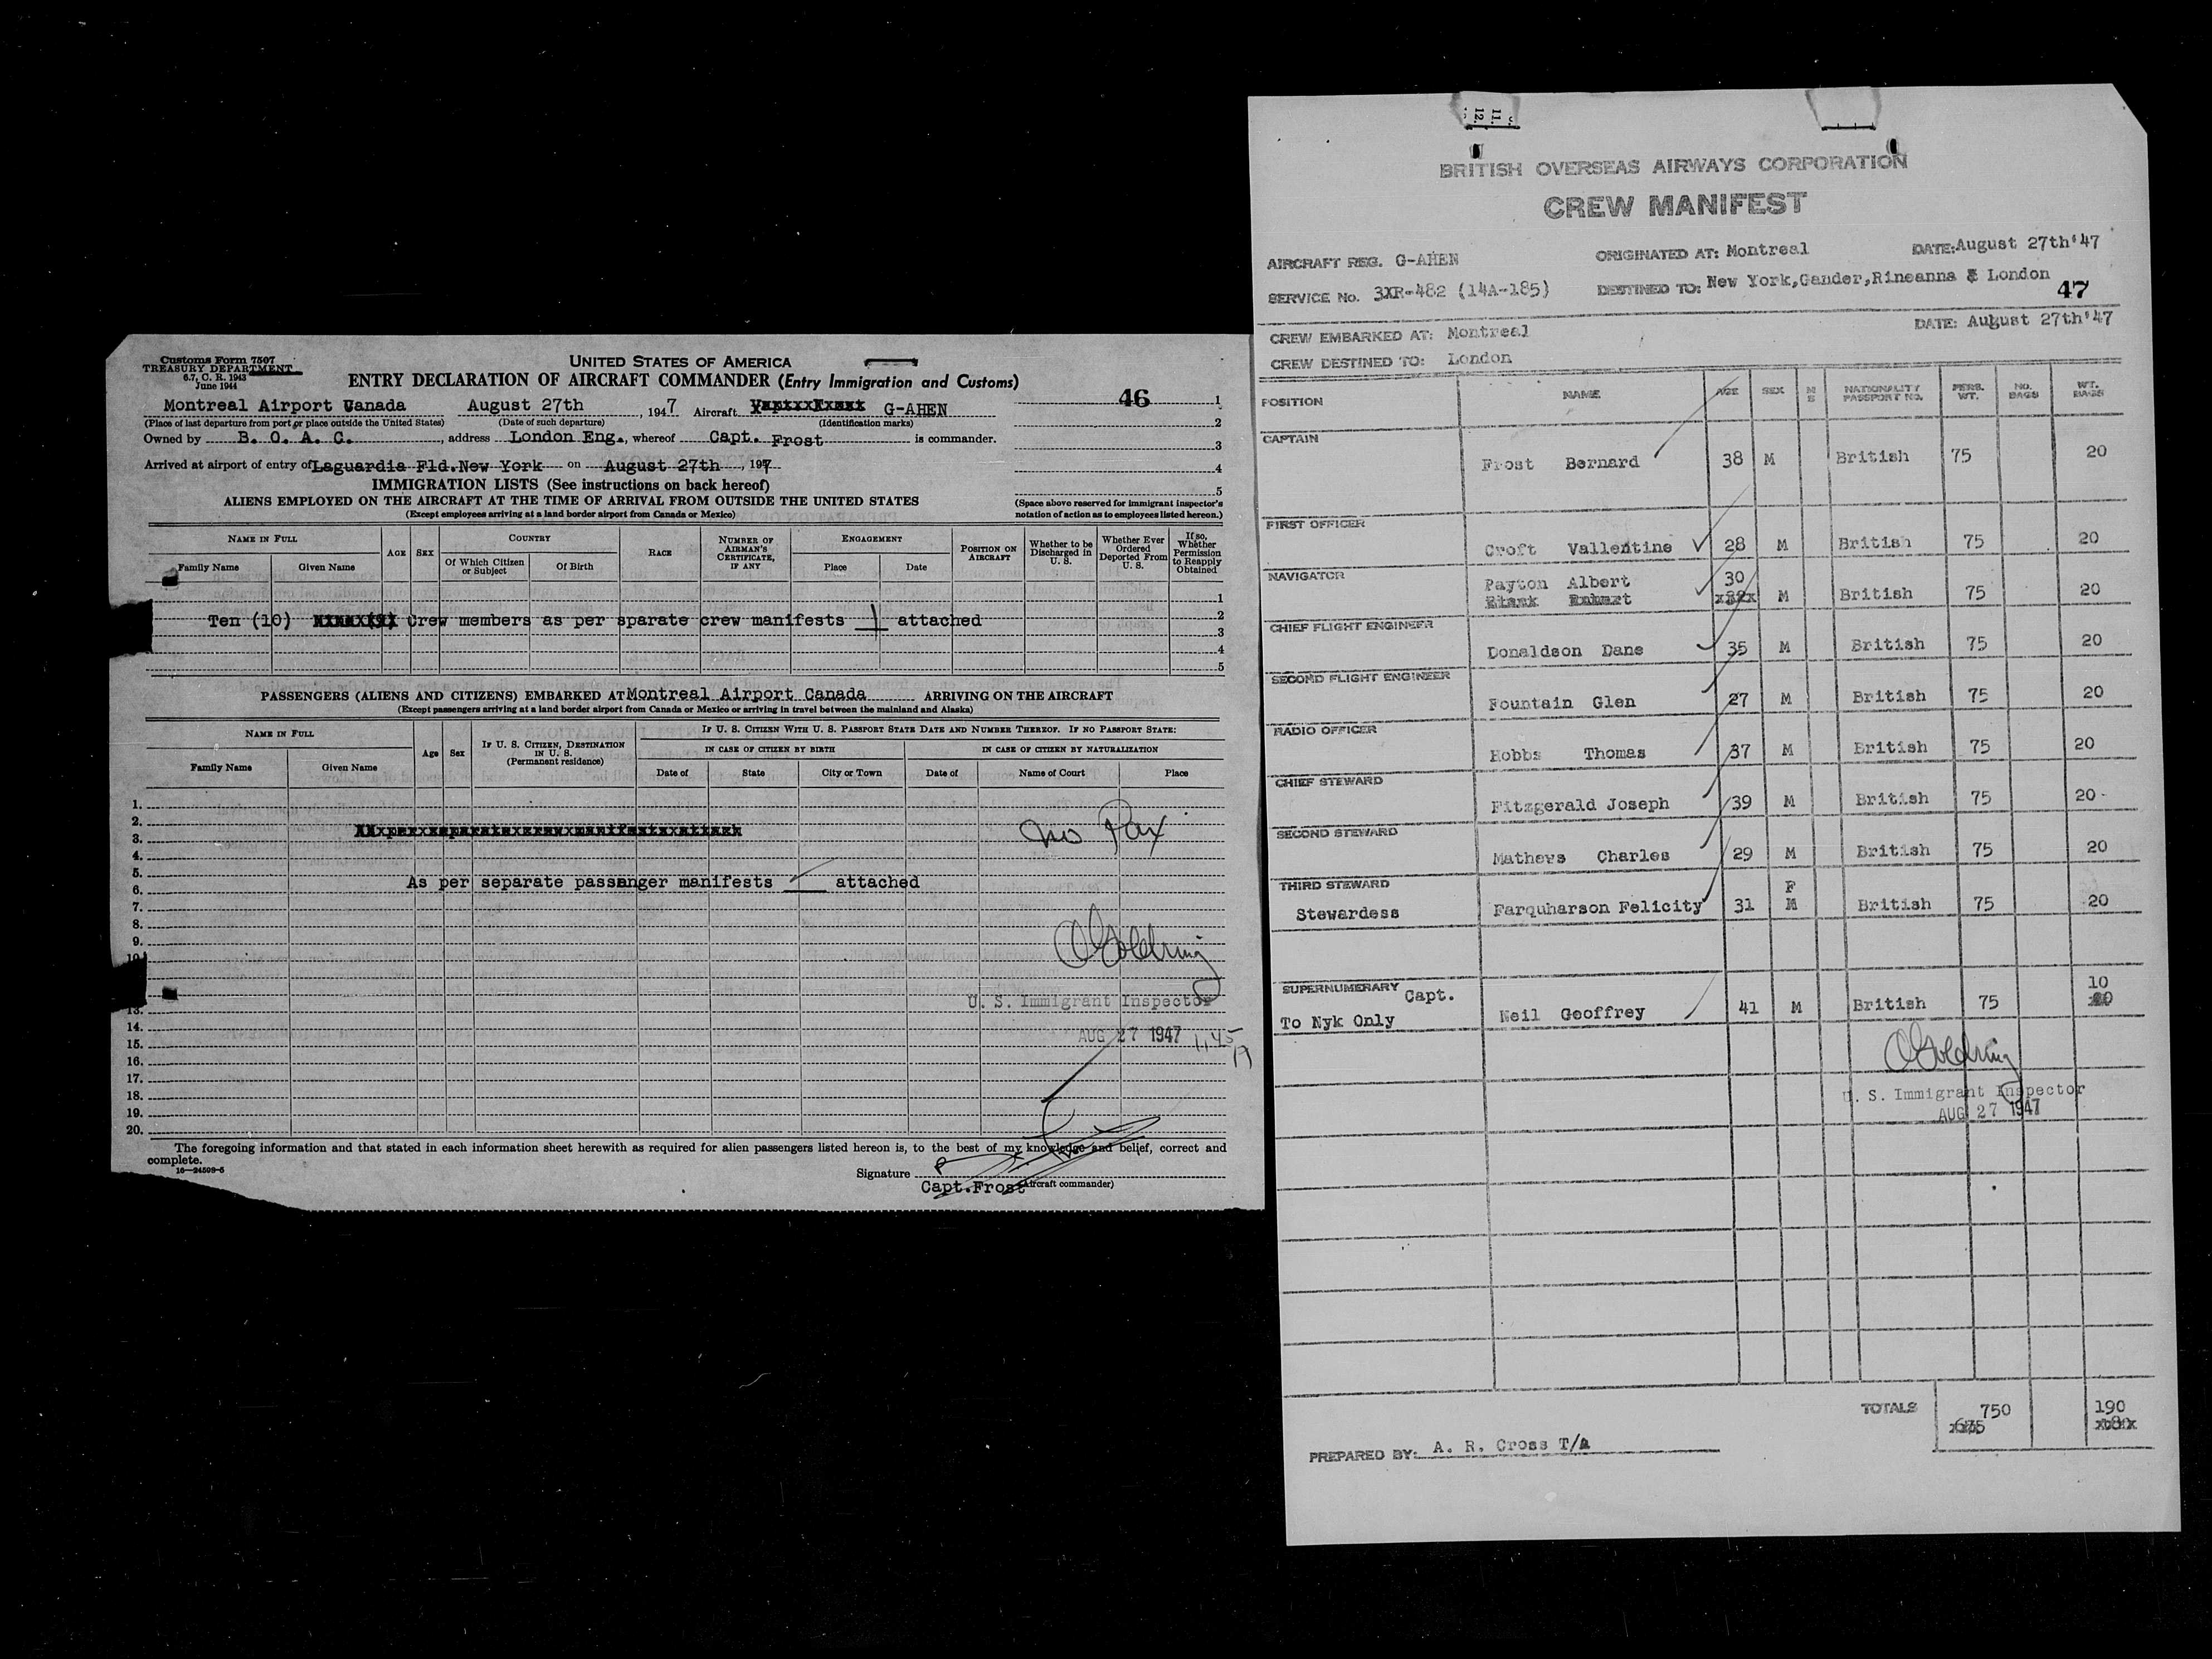 Customs Form 7507
TREASURY DEPARTMENT
6.7, C. R. 1943
June 1944
UNITED STATES OF AMERICA
ENTRY DECLARATION OF AIRCRAFT COMMANDER (Entry Immigration and Customs)
46
Montreal Airport Canada August 27th, 1947 Aircraft G-AHEN
(Place of last departure from port or place outside the United States) (Date of such departure) (Identification marks)
Owned by B. O. A. C., address London Eng., whereof Capt. Frost is commander.
Arrived at airport of entry of Laguardia Fld. New York on August 27th, 1947
1
2
3
4
5
IMMIGRATION LISTS (See instructions on back hereof)
ALIENS EMPLOYED ON THE AIRCRAFT AT THE TIME OF ARRIVAL FROM OUTSIDE THE UNITED STATES
(Except employees arriving at a land border airport from Canada or Mexico)
(Space above reserved for immigrant inspector's
notation of action as to employees listed hereon.)
NAME IN FULL AGE SEX COUNTRY RACE NUMBER OF AIRMAN'S CERTIFICATE, IF ANY ENGAGEMENT POSITION ON AIRCRAFT Whether to be Discharged in U. S. Whether Ever Ordered Deported From U. S. If so, Whether Permission to Reapply Obtained
Family Name Given Name Of Which Citizen or Subject Of Birth Place Date
1
2
Ten (10) Crew members as per sparate crew manifests 1 attached
3
4
5
PASSENGERS (ALIENS AND CITIZENS) EMBARKED AT Montreal Airport Canada ARRIVING ON THE AIRCRAFT
(Except passengers arriving at a land border airport from Canada or Mexico or arriving in travel between the mainland and Alaska)
NAME IN FULL Age Sex IF U. S. CITIZEN, DESTINATION IN U. S. (Permanent residence) IF U. S. CITIZEN WITH U. S. PASSPORT STATE DATE AND NUMBER THEREOF. IF NO PASSPORT STATE:
IN CASE OF CITIZEN BY BIRTH IN CASE OF CITIZEN BY NATURALIZATION
Family Name Given Name Date of State City or Town Date of Name of Court Place
1.
2.
No Pax
3.
4.
5.
6.
As per separate passanger manifests attached
7.
8.
9.
10.
U. S. Immigrant Inspector
13.
14.
AUG 27 1947
15.
16.
17.
18.
19.
20.
The foregoing information and that stated in each information sheet herewith as required for alien passengers listed hereon is, to the best of my knowledge and belief, correct and
complete.
16—24598-5
Signature
Capt. Frost (Aircraft commander)
11.
12.
BRITISH OVERSEAS AIRWAYS CORPORATION
CREW MANIFEST
AIRCRAFT REG. G-AHEN ORIGINATED AT: Montreal DATE: August 27th'47
SERVICE No. 3XR-482 (14A-185) DESTINED TO: New York,Gander,Rineanna & London
47
CREW EMBARKED AT: Montreal DATE: August 27th'47
CREW DESTINED TO: London
POSITION NAME AGE SEX M S NATIONALITY PASSPORT NO. PERS. WT. NO. BAGS WT. BAGS
CAPTAIN
Frost Bernard 38 M British 75 20
FIRST OFFICER
Croft Vallentine 28 M British 75 20
NAVIGATOR
Payton Albert 30 M British 75 20
CHIEF FLIGHT ENGINEER
Donaldson Dane 35 M British 75 20
SECOND FLIGHT ENGINEER
Fountain Glen 27 M British 75 20
RADIO OFFICER
Hobbs Thomas 37 M British 75 20
CHIEF STEWARD
Fitzgerald Joseph 39 M British 75 20
SECOND STEWARD
Mathews Charles 29 M British 75 20
THIRD STEWARD
Stewardess Farquharson Felicity 31 F British 75 20
SUPERNUMERARY Capt.
To Nyk Only Neil Geoffrey 41 M British 75 10
U. S. Immigrant Inspector
AUG 27 1947
TOTALS 750 190
PREPARED BY: A. R. Cross T/A